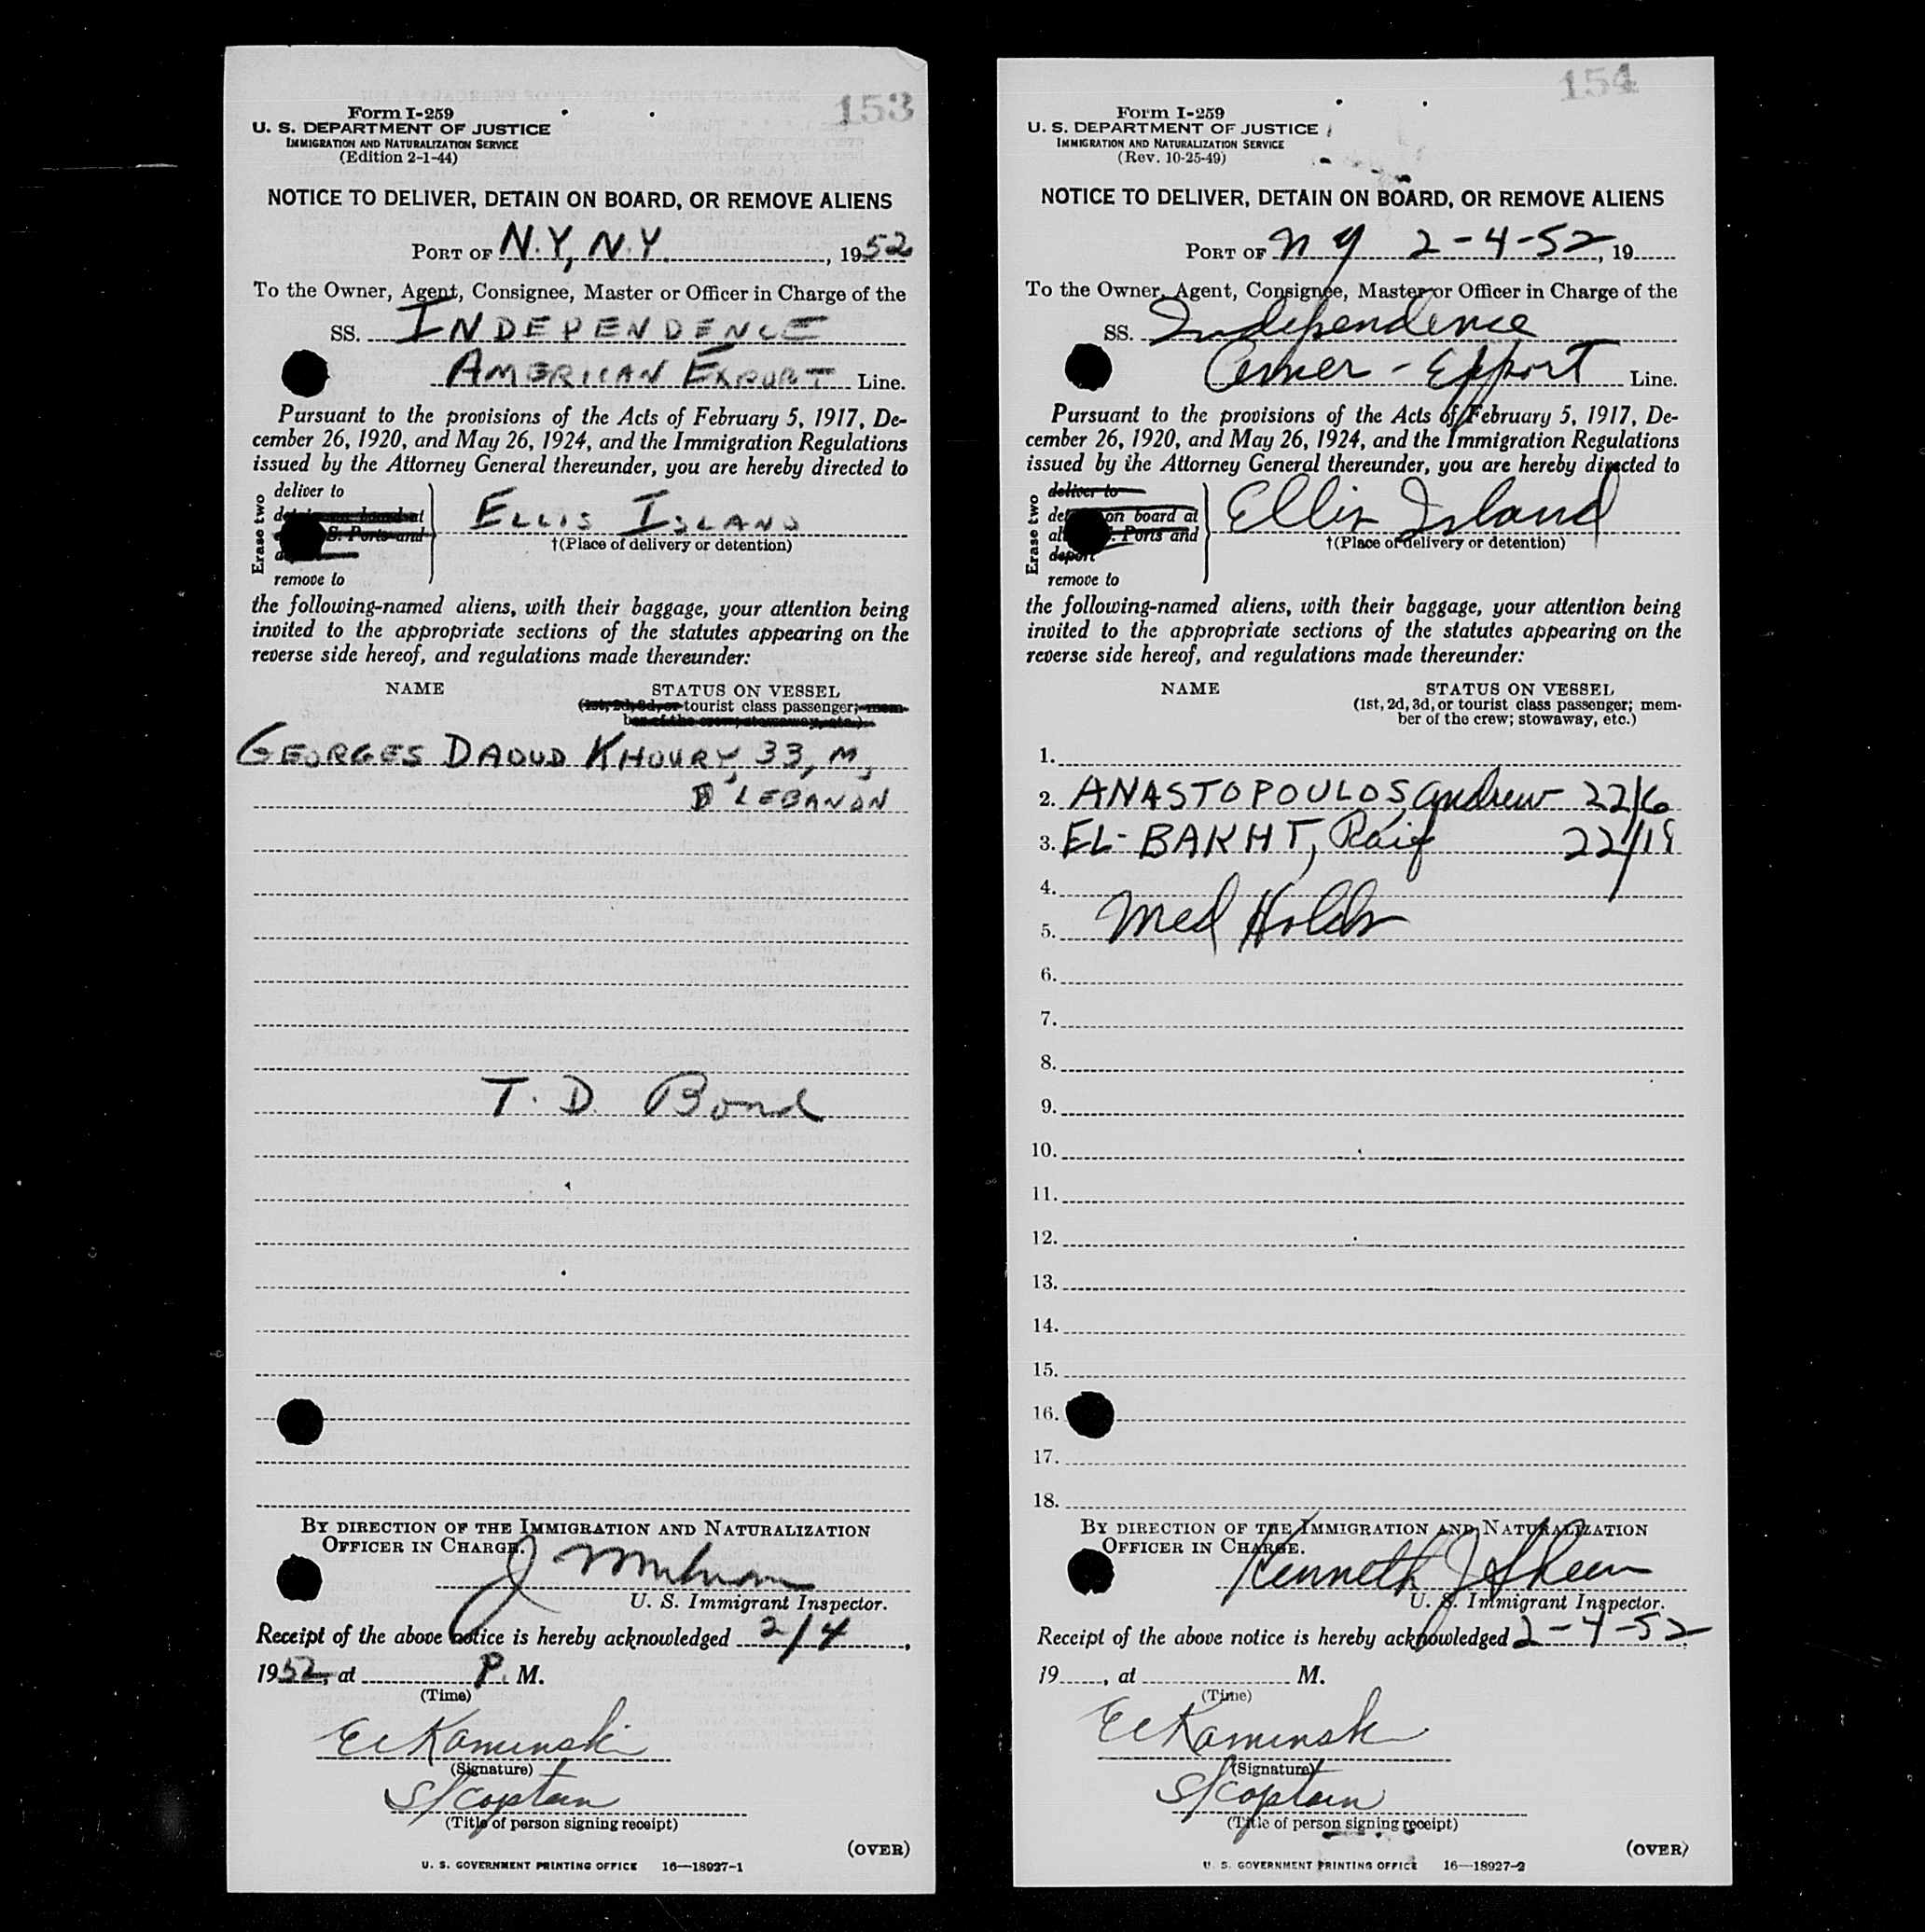 153
Form I-259
U. S. DEPARTMENT OF JUSTICE
IMMIGRATION AND NATURALIZATION SERVICE
(Edition 2-1-44)
NOTICE TO DELIVER, DETAIN ON BOARD, OR REMOVE ALIENS
PORT OF N.Y., N.Y. , 1952
To the Owner, Agent, Consignee, Master or Officer in Charge of the
SS. INDEPENDENCE
AMERICAN EXPORT Line.
Pursuant to the provisions of the Acts of February 5, 1917, De-
cember 26, 1920, and May 26, 1924, and the Immigration Regulations
issued by the Attorney General thereunder, you are hereby directed to
Erase two
deliver to
S. Ports and
remove to
ELLIS ISLAND
†(Place of delivery or detention)
the following-named aliens, with their baggage, your attention being
invited to the appropriate sections of the statutes appearing on the
reverse side hereof, and regulations made thereunder:
NAME STATUS ON VESSEL
(1st, 2d, 3d, or tourist class passenger; mem-
ber of the crew; stowaway, etc.)
GEORGES DAOUD KHOURY, 33, M,
LEBANON
T. D. Bond
BY DIRECTION OF THE IMMIGRATION AND NATURALIZATION
OFFICER IN CHARGE.
J
U. S. Immigrant Inspector.
Receipt of the above notice is hereby acknowledged 2/4,
1952, at P. M.
(Time)
E C Kaminski
(Signature)
S/Captain
(Title of person signing receipt)
(OVER)
U. S. GOVERNMENT PRINTING OFFICE 16—18927-1
154
Form I-259
U. S. DEPARTMENT OF JUSTICE
IMMIGRATION AND NATURALIZATION SERVICE
(Rev. 10-25-49)
NOTICE TO DELIVER, DETAIN ON BOARD, OR REMOVE ALIENS
PORT OF N Y 2-4-52, 19
To the Owner, Agent, Consignee, Master or Officer in Charge of the
SS. Independence
Amer - Export Line.
Pursuant to the provisions of the Acts of February 5, 1917, De-
cember 26, 1920, and May 26, 1924, and the Immigration Regulations
issued by the Attorney General thereunder, you are hereby directed to
Erase two
deliver to
on board at
Ports and
deport
remove to
Ellis Island
†(Place of delivery or detention)
the following-named aliens, with their baggage, your attention being
invited to the appropriate sections of the statutes appearing on the
reverse side hereof, and regulations made thereunder:
NAME STATUS ON VESSEL
(1st, 2d, 3d, or tourist class passenger; mem-
ber of the crew; stowaway, etc.)
1.
2. ANASTOPOULOS Andrew 22/6
3. EL-BAKHT, Raif 22/19
4.
5. Med Holds
6.
7.
8.
9.
10.
11.
12.
13.
14.
15.
16.
17.
18.
BY DIRECTION OF THE IMMIGRATION AND NATURALIZATION
OFFICER IN CHARGE.
Kenneth J Sheen
U. S. Immigrant Inspector.
Receipt of the above notice is hereby acknowledged 2-4-52,
19, at M.
(Time)
E C Kaminski
(Signature)
S/Captain
(Title of person signing receipt)
(OVER)
U. S. GOVERNMENT PRINTING OFFICE 16—18927-2